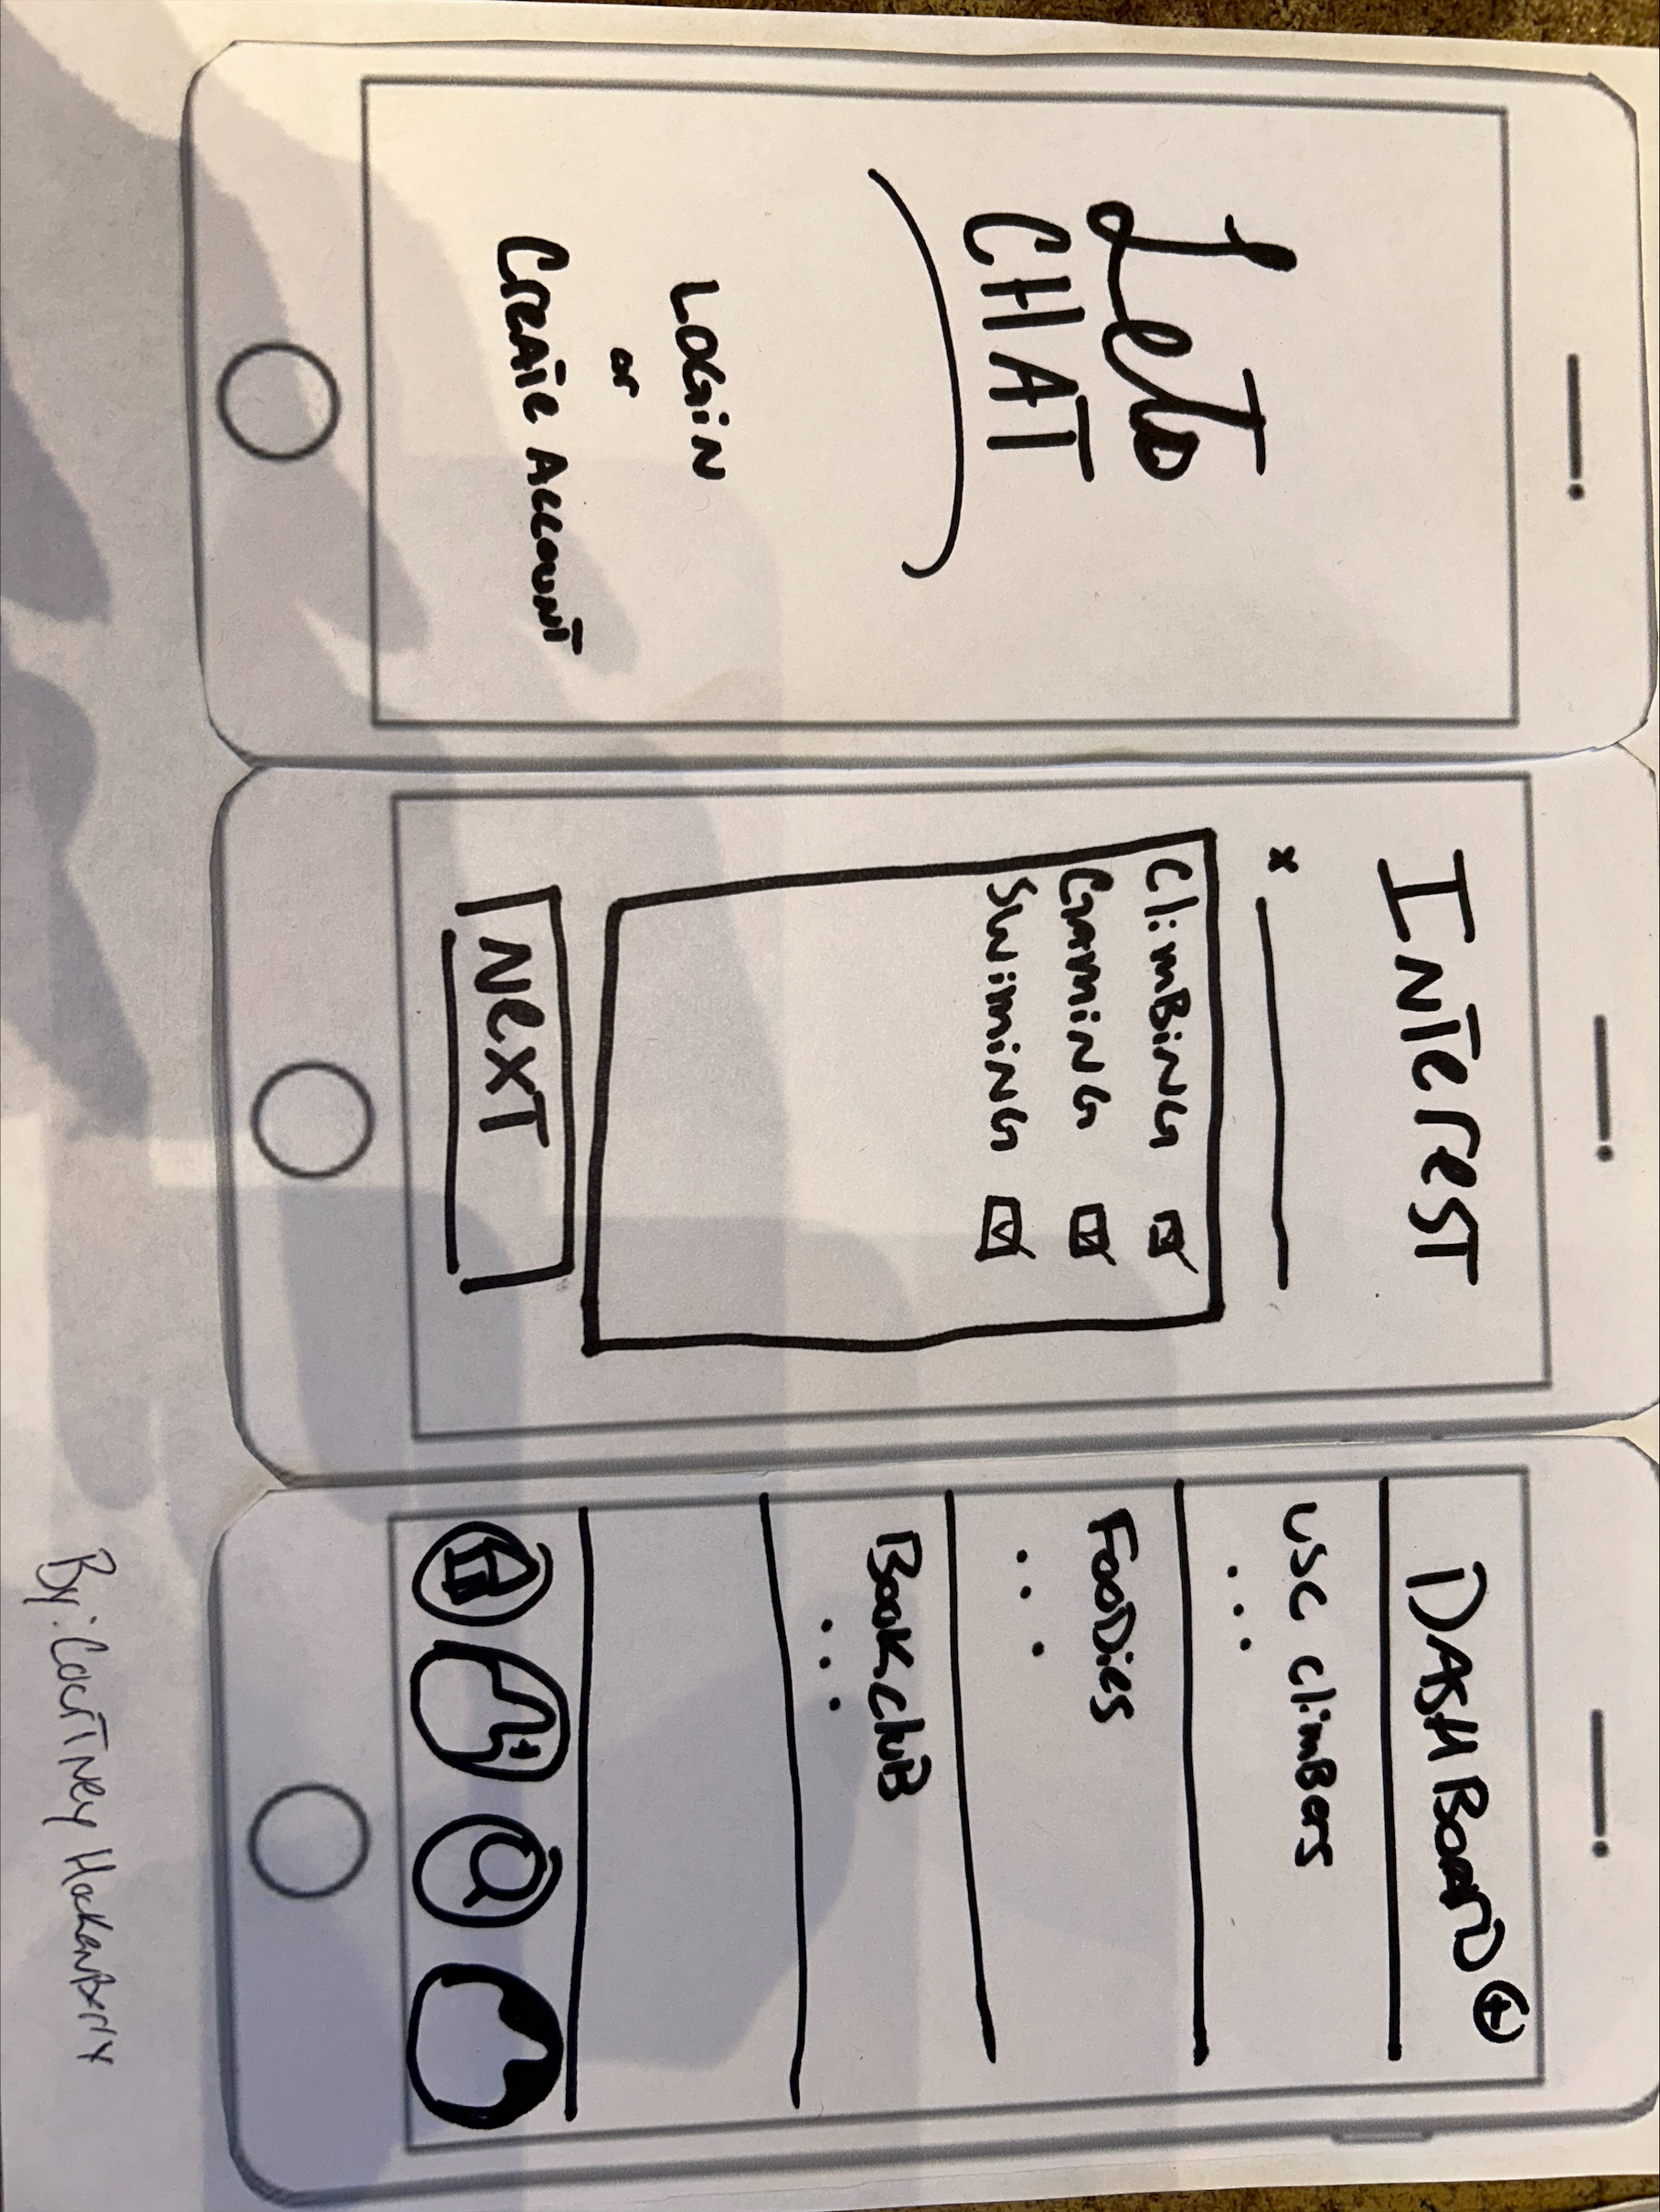 Lets
CHAT
LOGiN
or
CreATe ACCOUNT
INTeresT
x
ClimBiNG
GAMiNG
SwimiNG
NexT
DASHBOArD +
USC ClimBers
...
FooDies
...
BookcluB
...
By: CourTNey HockenBerry